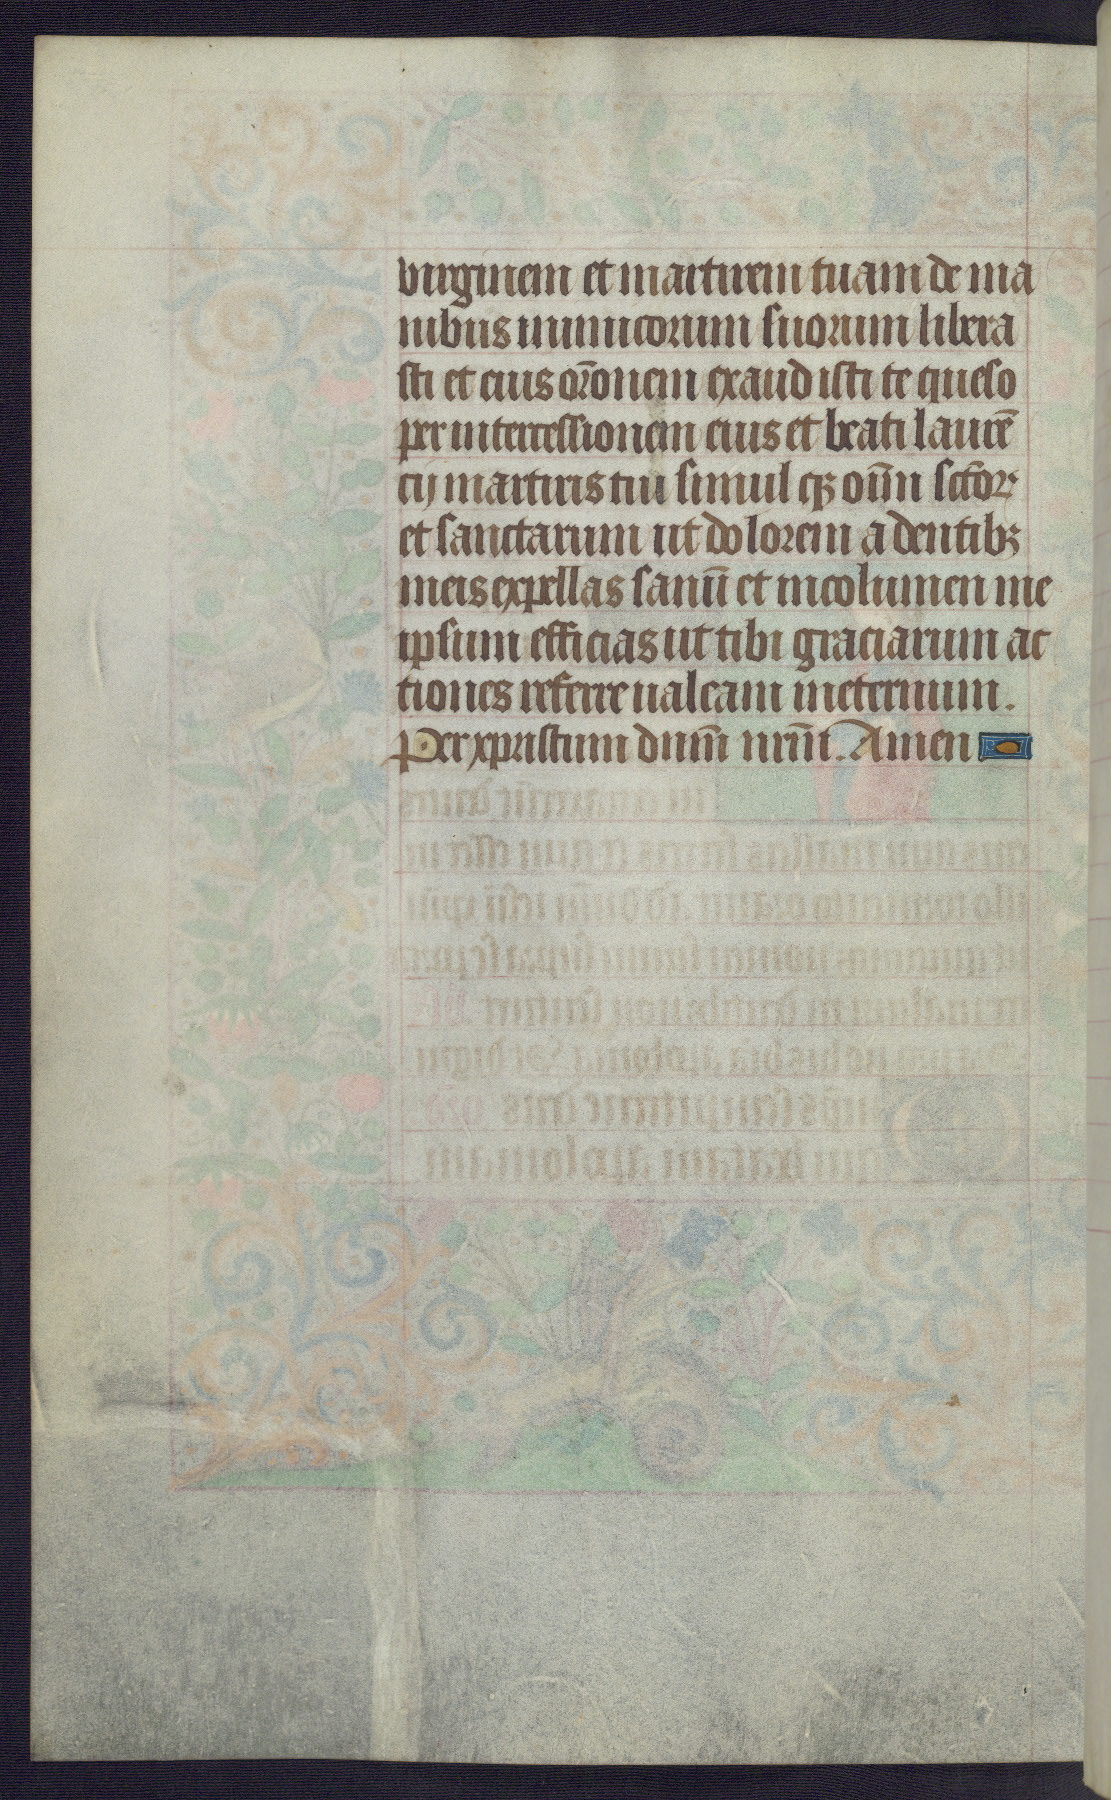 virginem et martirem tuam de ma
nibus inimicorum suorum libera
sti et eius or̄onem exaudisti te queso
per intercessionem eius et beati laurē
cij martiris tui simul qꝫ oīm sc̄torꝝ
et sanctarum ut dolorem a dentibꝫ
meis expellas sanū et incolumen me
ipsum efficias ut tibi graciarum ac
tiones referre ualeam ineternum.
Per xpristum dnm̄ nrm̄. Amen